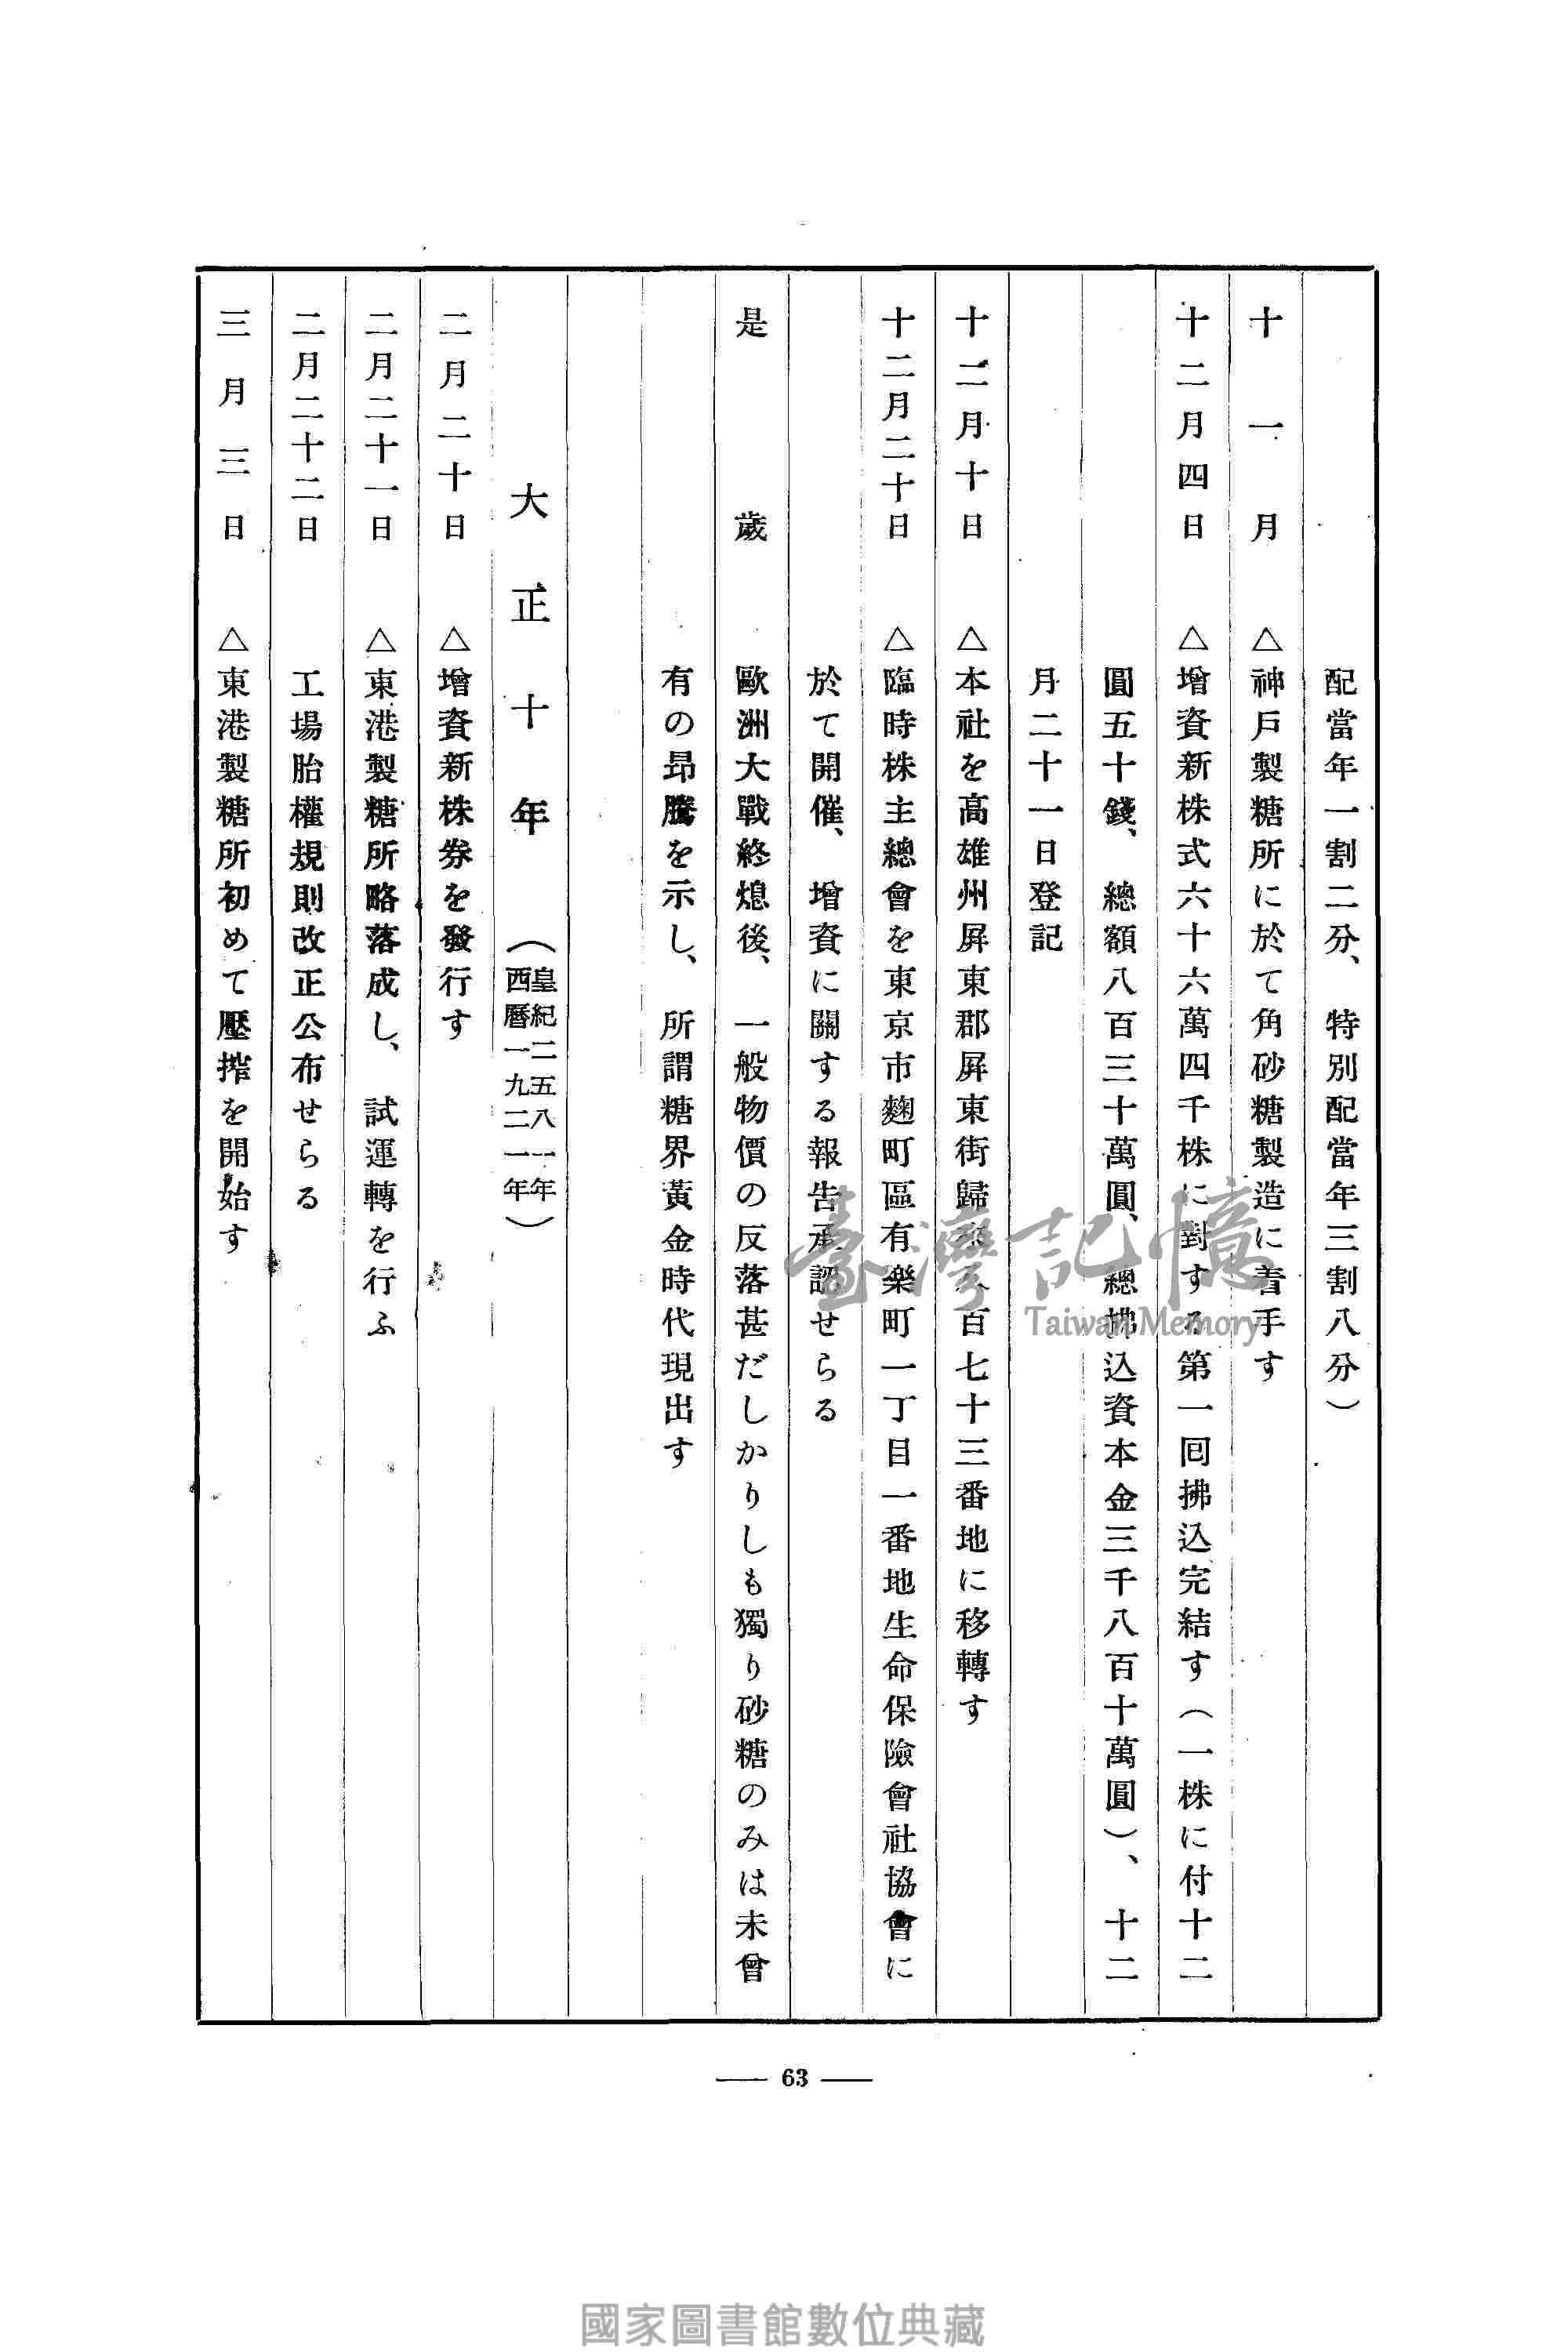 配當年一割二分、特別配當年三割八分）
十一月　△神戶製糖所に於て角砂糖製造に着手す
十二月四日　△增資新株式六十六萬四千株に對する第一回拂込完結す（一株に付十二
圓五十錢、總額八百三十萬圓、總拂込資本金三千八百十萬圓）、十二
月二十一日登記
十二月十日　△本社を高雄州屛東郡屛東街歸來百七十三番地に移轉す
十二月二十日　△臨時株主總會を東京市麴町區有樂町一丁目一番地生命保險會社協會に
於て開催、增資に關する報告承認せらる
是歲　歐洲大戰終熄後、一般物價の反落甚だしかりしも獨り砂糖のみは未曾
有の昻騰を示し、所謂糖界黃金時代現出す
大正十年（皇紀二五八一年
西曆一九二一年）
二月二十日　△增資新株券を發行す
二月二十一日　△東港製糖所略落成し、試運轉を行ふ
二月二十二日　工場胎權規則改正公布せらる
三月三日　△東港製糖所初めて壓搾を開始す
63
臺灣記憶
Taiwan Memory
國家圖書館數位典藏